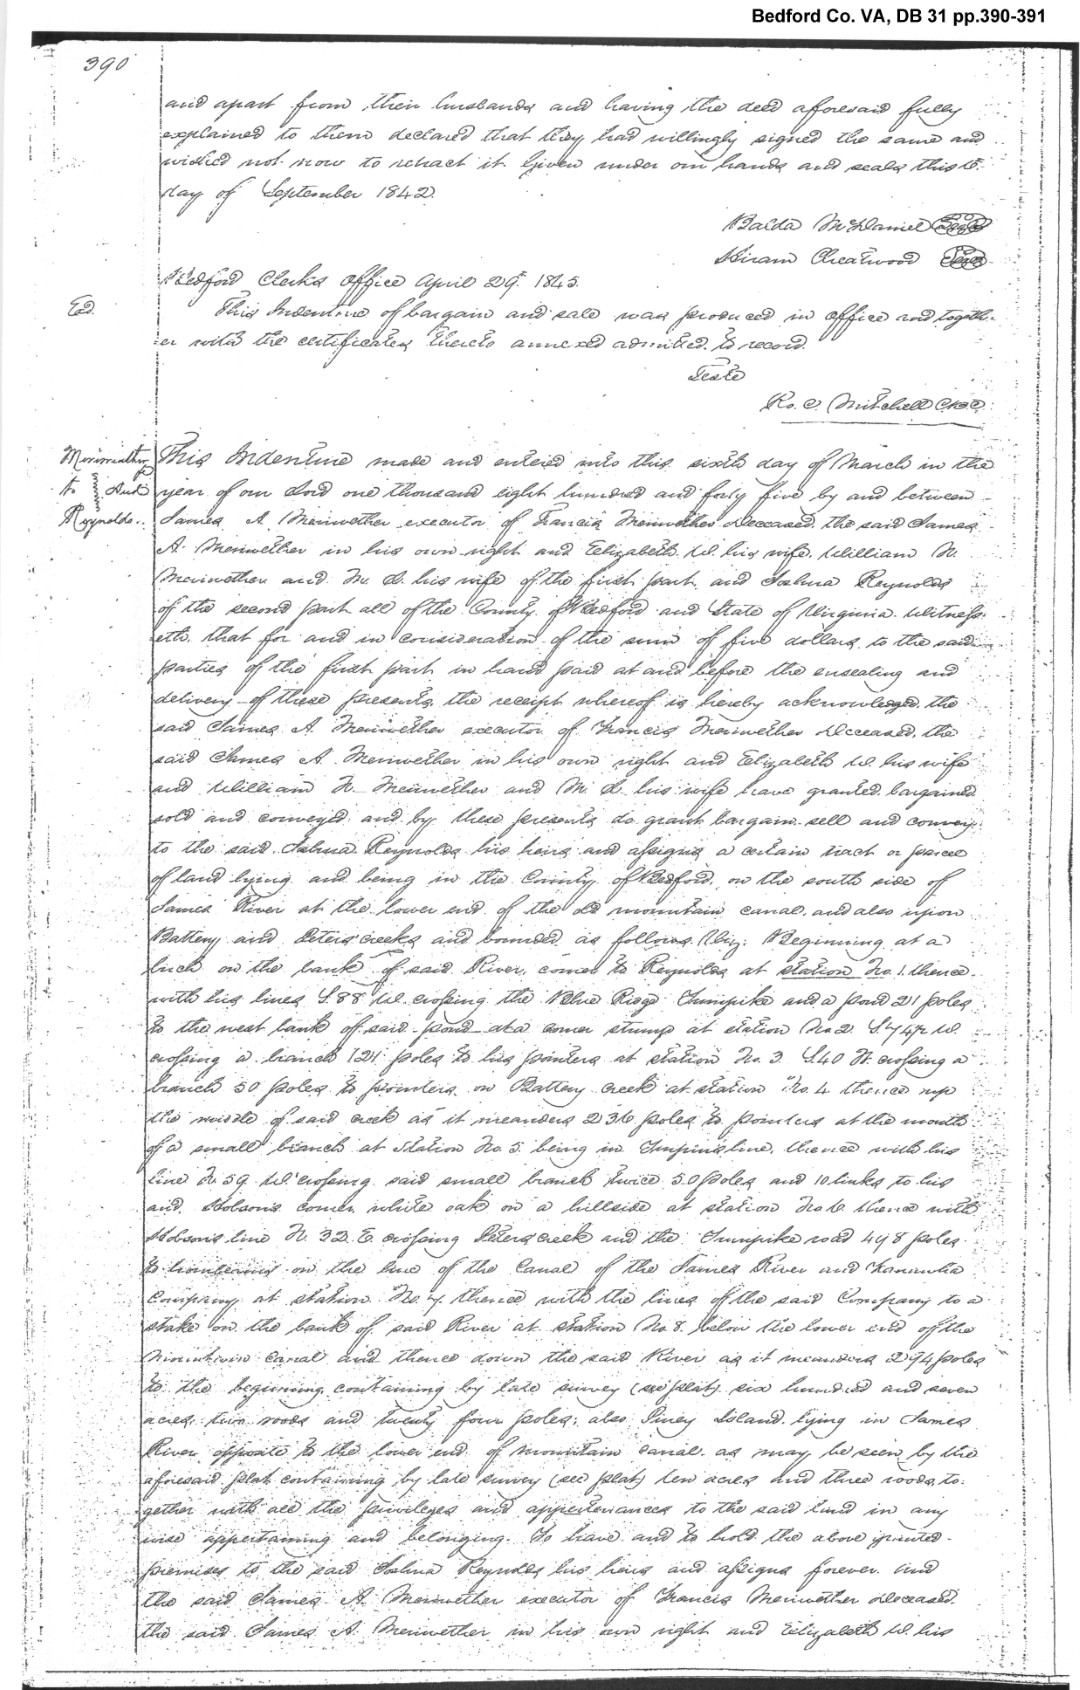 Bedford Co. VA, DB 31 pp.390-391
390
and apart from their husbands and having the deed aforesaid fully
explained to them declared that they had willingly signed the same and
wished not now to retract it Given under our hands and seals this 5
day of September 1842
Balda McDaniel Seal
Hiram Cheatwood Seal
Bedford Clerks Office April 29th 1845
Exd.
This Indenture of bargain and sale was produced in office and togeth-
er with the certificates thereto annexed admitted to record
Teste
Ro. C. Mitchell CBC
Meriweather
to } Deed
Reynolds
This Indenture made and entered into this sixth day of March in the
year of our Lord one thousand eight hundred and forty five by and between
James A. Meriwether executor of Francis Meriwether deceased, the said James
A. Meriwether in his own right and Elizabeth W. his wife, William N.
Meriwether and M. L. his wife of the first part and Joshua Reynolds
of the second part all of the County of Bedford and State of Virginia Witness-
eth that for and in consideration of the sum of five dollars to the said
parties of the first part in hand paid at and before the ensealing and
delivery of these presents the receipt whereof is hereby acknowledged the
said James A. Meriwether executor of Francis Meriwether deceased, the
said James A. Meriwether in his own right and Elizabeth W. his wife
and William N. Meriwether and M. L. his wife have granted bargained
sold and conveyed and by these presents do grant bargain sell and convey
to the said Joshua Reynolds his heirs and assigns a certain tract or parcel
of land lying and being in the County of Bedford on the south side of
James River at the lower end of the old mountain canal, and also upon
Battery and Peters creeks and bounded as follows (Viz: Beginning at a
birch on the bank of said River, corner to Reynolds at station No. 1. thence
with his lines S. 88 W. crossing the Blue Ridge Turnpike and a pond 21 poles
to the west bank of said pond at a corner stump at station No 2 S. 74½ W.
crossing a branch 121 poles to his pointers at station No. 3 S. 40 W. crossing a
branch 50 poles to pointers on Battery Creek at station No. 4 thence up
the middle of said creek as it meanders 236 poles to pointers at the mouth
of a small branch at Station No. 5 being in Turpins line, thence with his
line N. 59 W. crossing said small branch twice 50 poles and 10 links to his
and Hobsons corner white oak on a hillside at station No 6 thence with
Hobsons line N. 32 E. crossing Peters creek and the Turnpike road 498 poles
to on the line of the Canal of the James River and Kanawha
Company at station No. 7 thence with the lines of the said Company to a
stake on the bank of said River at station No 8 below the lower end of the
mountain canal and thence down the said River as it meanders 294 poles
to the beginning containing by late survey (see plat) six hundred and seven
acres two roods and twenty four poles; also Piney Island lying in James
River opposite to the lower end of mountain canal as may be seen by the
aforesaid plat containing by late survey (see plat) ten acres and three roods to-
gether with all the privileges and appurtenances to the said land in any
wise appertaining and belonging. To have and to hold the above granted
premises to the said Joshua Reynolds his heirs and assigns forever And
the said James A. Meriwether executor of Francis Meriwether deceased
the said James A. Meriwether in his own right and Elizabeth W. his